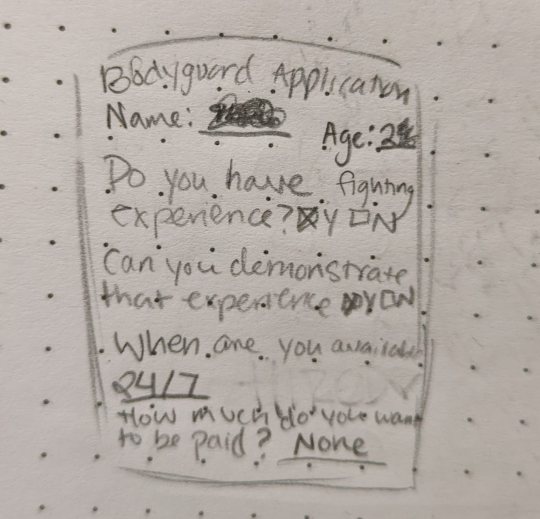 Bodyguard Application
Name:
Age: 2
Do you have fighting
experience? ☒Y ☐N
Can you demonstrate
that experience ☒Y ☐N
When are you available
24/7
How much do you want
to be paid? None